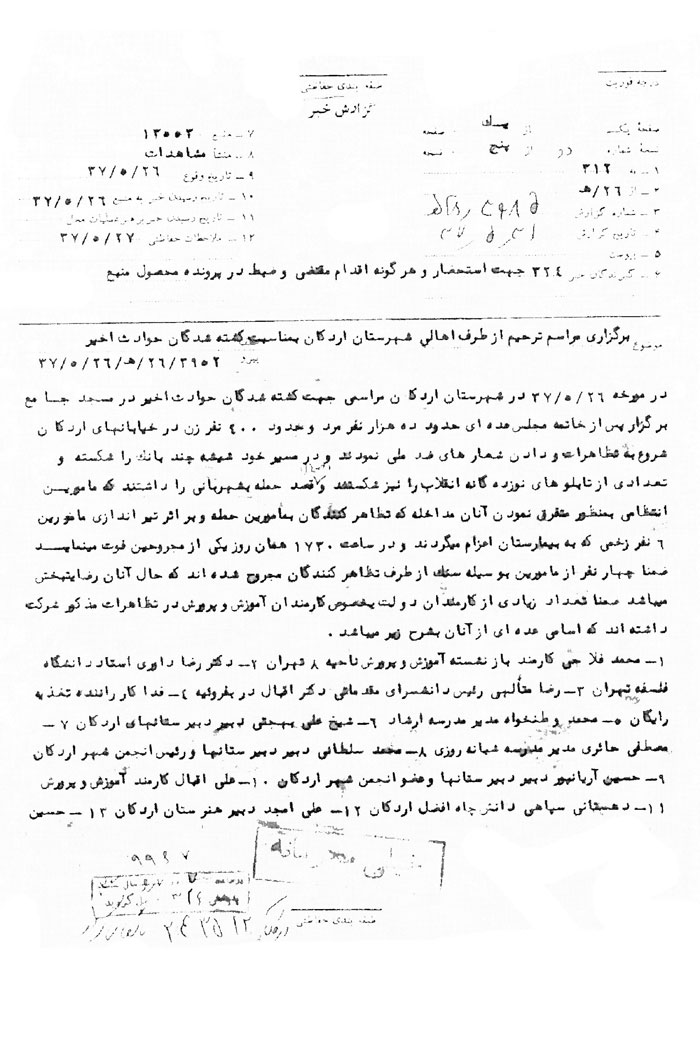 درجه فوریت
طبقه بندی حفاظتی
گزارش خبر
صفحه یکم از یک صفحه
نسخه شماره دو از پنج نسخه
۱ـ به ۳۱۲
۲ـ از ۲۶/هـ
۳ـ شماره گزارش
۴ـ تاریخ گزارش
۵ـ پیوست
۶ـ گیرندگان خبر ۳۲۴ جهت استحضار و هر گونه اقدام مقتضی و ضبط در پرونده محصول منبع
۷ـ منبع ۱۲۵۵۳
۸ـ منشأ مشاهدات
۹ـ تاریخ وقوع ۳۷/۵/۲۶
۱۰ـ تاریخ رسیدن خبر به منبع ۳۷/۵/۲۶
۱۱ـ تاریخ رسیدن خبر به رهبر عملیات محل
۱۲ـ ملاحظات حفاظتی ۳۷/۵/۲۷
موضوع برگزاری مراسم ترحیم از طرف اهالی شهرستان اردکان بمناسبت کشته شدگان حوادث اخیر
پیرو ۳۹۵۲/۲۶هـ/۳۷/۵/۲۶
در مورخه ۳۷/۵/۲۶ در شهرستان اردکان مراسمی جهت کشته شدگان حوادث اخیر در مسجد جامع
برگزار پس از خاتمه مجلس عده ای حدود ده هزار نفر مرد و حدود ۴۰۰ نفر زن در خیابانهای اردکان
شروع به تظاهرات و دادن شعار های ضد ملی نمودند و در مسیر خود شیشه چند بانک را شکسته و
تعدادی از تابلو های نوزده گانه انقلاب را نیز شکستند و قصد حمله بشهربانی را داشتند که مامورین
انتظامی بمنظور متفرق نمودن آنان مداخله که تظاهر کنندگان بمأمورین حمله و بر اثر تیر اندازی مامورین
۶ نفر زخمی که به بیمارستان اعزام میگردند و در ساعت ۱۷۳۰ همان روز یکی از مجروحین فوت مینماید
ضمنا چهار نفر از مامورین بوسیله سنگ از طرف تظاهر کنندگان مجروح شده اند که حال آنان رضایتبخش
میباشد ضمنا تعداد زیادی از کارمندان دولت بخصوص کارمندان آموزش و پرورش در تظاهرات مذکور شرکت
داشته اند که اسامی عده ای از آنان بشرح زیر میباشد .
۱ـ محمد فلاحی کارمند باز نشسته آموزش و پرورش ناحیه ۸ تهران ۲ـ دکتر رضا داوری استاد دانشگاه
فلسفه تهران ۳ـ رضا متألهی رئیس دانشسرای مقدماتی دکتر اقبال در بفروئیه ۴ـ فدا کار راننده تغذیه
رایگان ۵ـ محمد وطنخواه مدیر مدرسه ارشاد ۶ـ شیخ علی بهجتی دبیر دبیرستانهای اردکان ۷ـ
مصطفی حائری مدیر مدرسه شبانه روزی ۸ـ محمد سلطانی دبیر دبیرستانها و رئیس انجمن شهر اردکان
۹ـ حسین آریانپور دبیر دبیرستانها و عضو انجمن شهر اردکان ۱۰ـ علی اقبال کارمند آموزش و پرورش
۱۱ـ دهستانی سپاهی دانش چاه افضل اردکان ۱۲ـ علی امجد دبیر هنرستان اردکان ۱۳ـ حسین
خیلی محرمانه
طبقه بندی حفاظتی